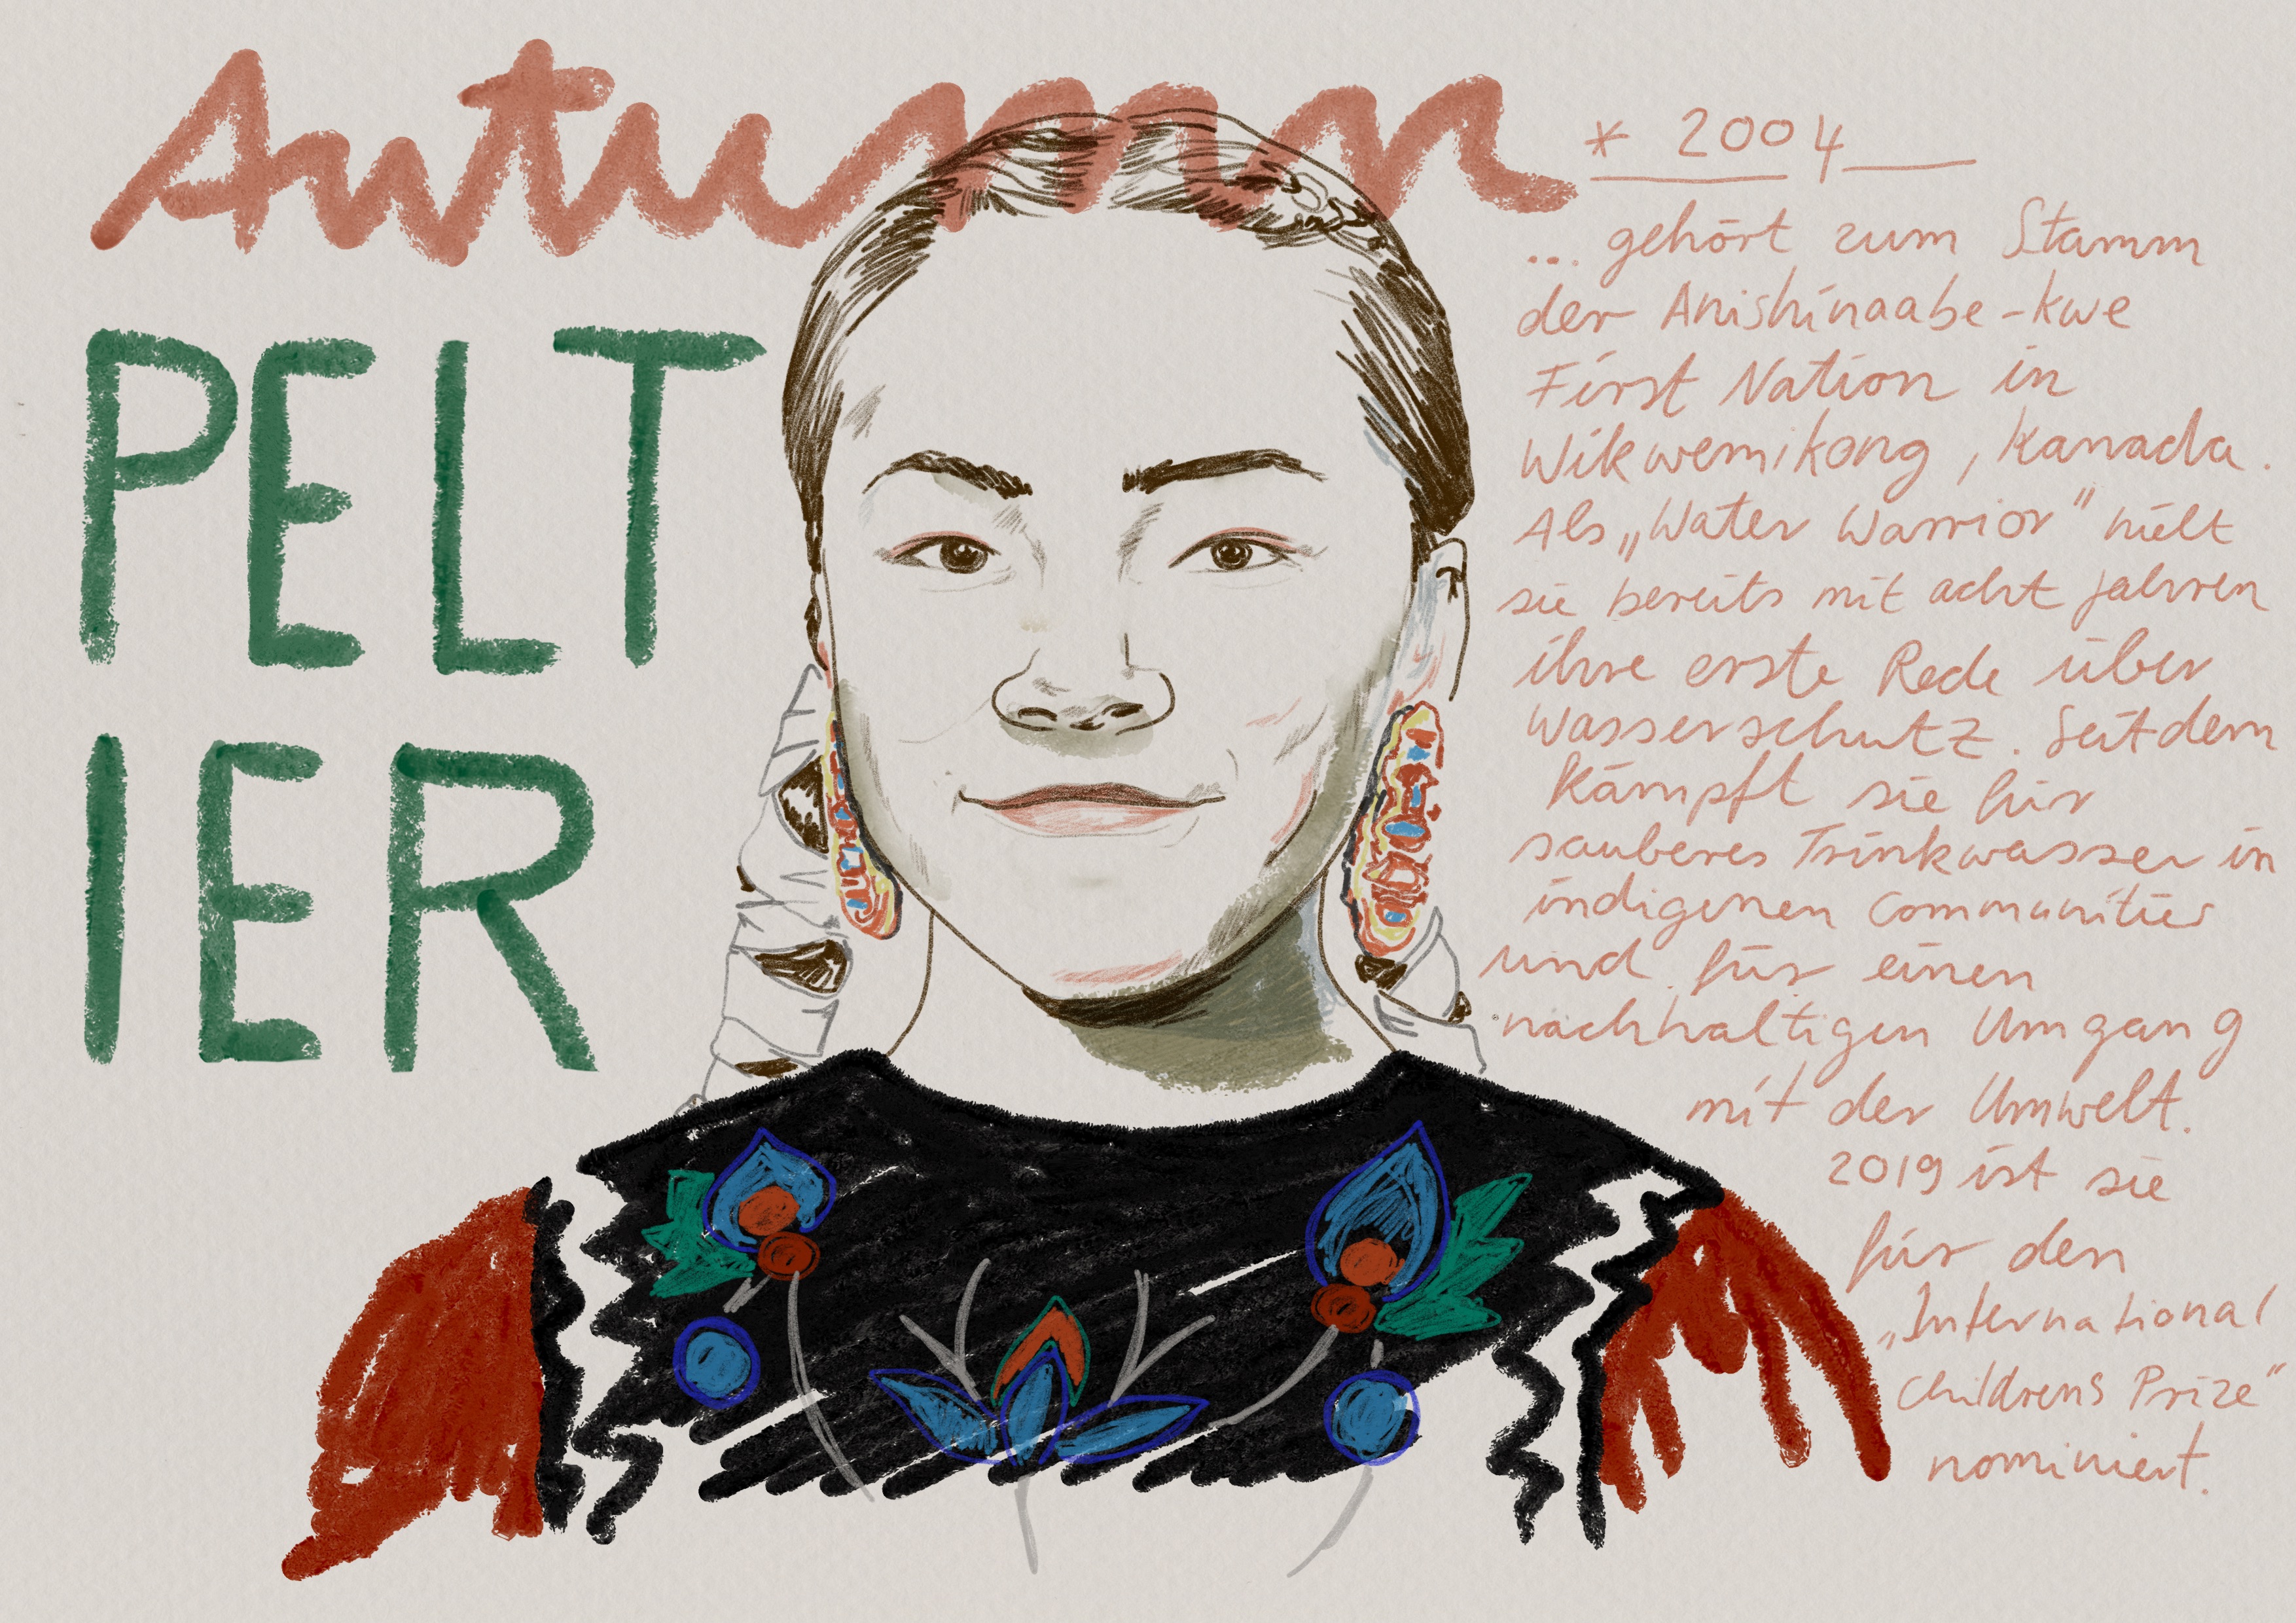 Autumn
PELT
IER
* 2004
... gehört zum Stamm
der Anishinaabe-kwe
First Nation in
Wikwemikong, Kanada.
Als „Water Warrior" hielt
sie bereits mit acht Jahren
ihre erste Rede über
Wasserschutz. Seitdem
kämpft sie für
sauberes Trinkwasser in
indigenen Communities
und für einen
nachhaltigen Umgang
mit der Umwelt.
2019 ist sie
für den
„International
Childrens Prize"
nominiert.